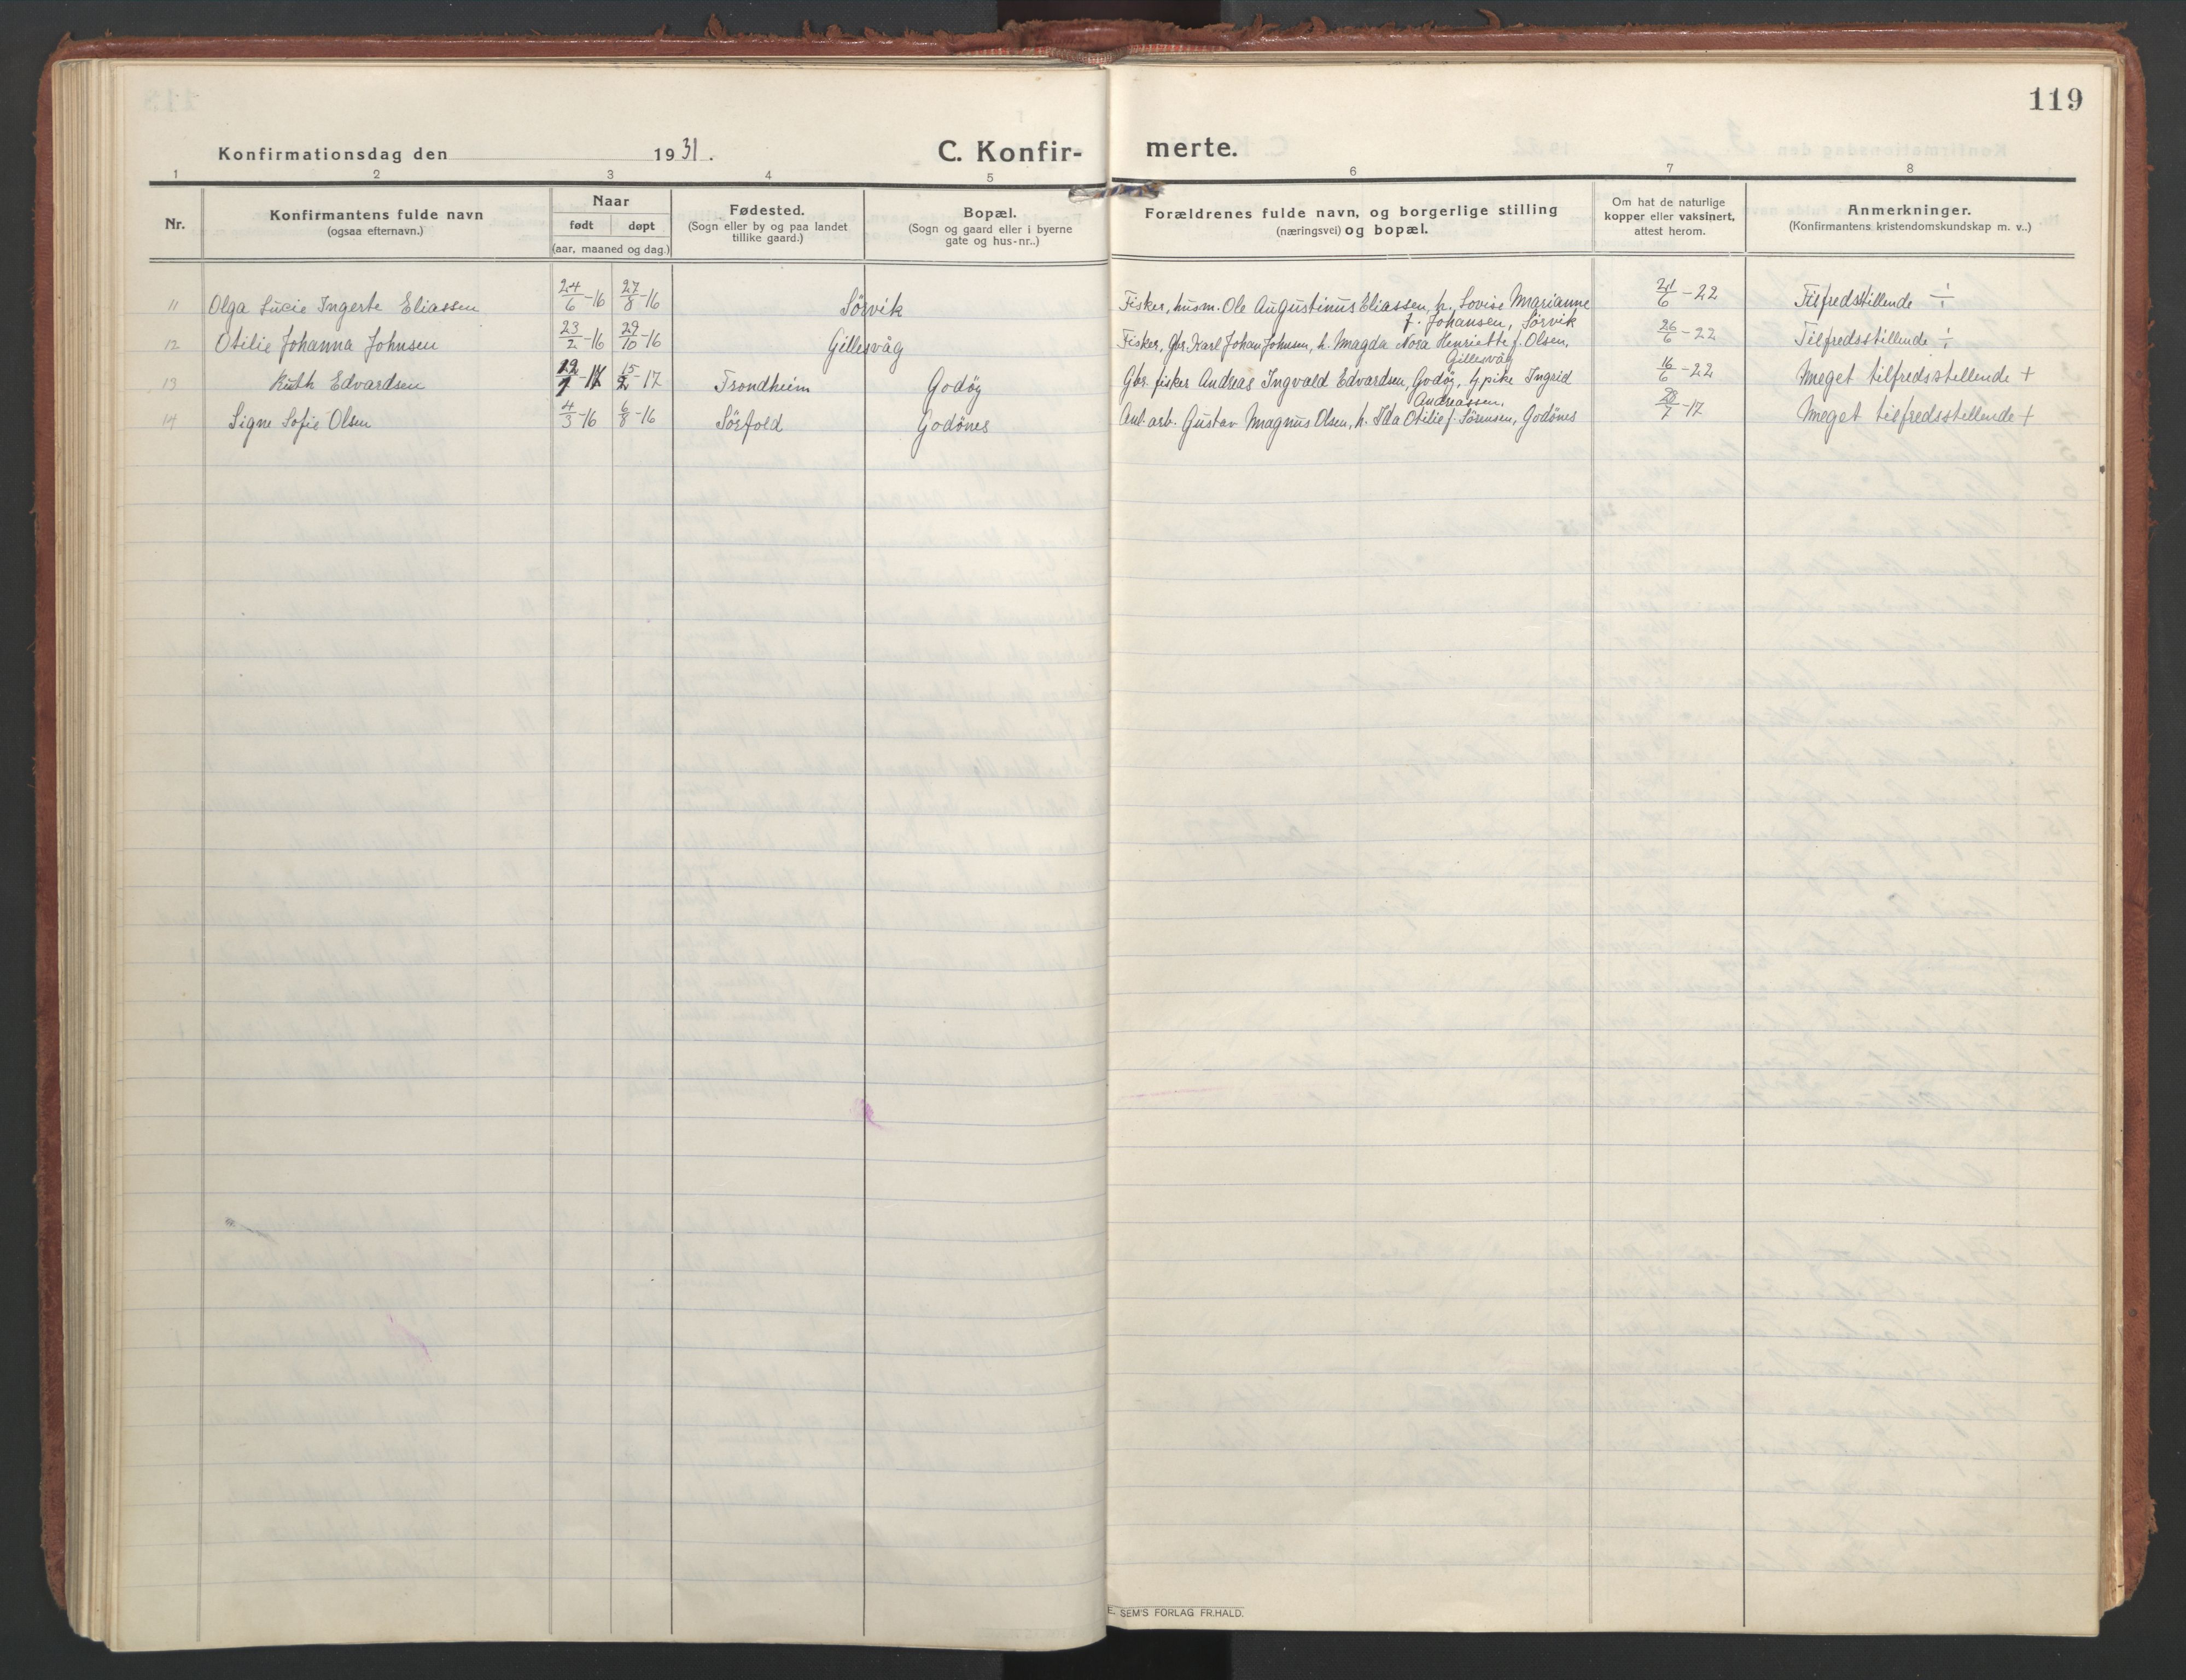 119
Konfirmationsdag den 1931.
C. Konfirmerte.
1 2 3 4 5 6 7 8
Nr.
Konfirmantens fulde navn
(ogsaa efternavn.)
Naar
født døpt
(aar, maaned og dag.)
Fødested.
(Sogn eller by og paa landet
tillike gaard.)
Bopæl.
(Sogn og gaard eller i byerne
gate og hus-nr..)
Forældrenes fulde navn, og borgerlige stilling
(næringsvei) og bopæl.
Om hat de naturlige
kopper eller vaksinert,
attest herom.
Anmerkninger.
(Konfirmantens kristendomskundskap m. v..)
11 Olga Lucie Ingerte Eliassen 24/6-16 27/8-16 Sörvik Fisker, husm. Ole Augustinus Eliassen, h. Lovise Marianne 21/6-22 Tilfredstillende ÷
f. Johansen, Sörvik
12 Otilie Johanna Johnsen 23/2-16 29/10-16 Gillesvåg Fisker, gbr. Karl Johan Johnsen, h. Magda Nora Henriette f. Olsen, 26/6-22 Tilfredsstillende ÷
Gillesvåg
13 Ruth Edvardsen -17 15/2-17 Trondheim Godöy Gbr. fisker Andreas Ingvald Edvardsen, Godöy, pike Ingrid 16/6-22 Meget tilfredsstellende +
Andreassen.
14 Signe Sofie Olsen 4/3-16 6/8-16 Sörfold Godönes Anl. arb. Gustav Magnus Olsen, h. Ida Otilie f. Sörensen, Godönes 28/7-17 Meget tilfredsstellende +
E. SEM'S FORLAG FR.HALD.